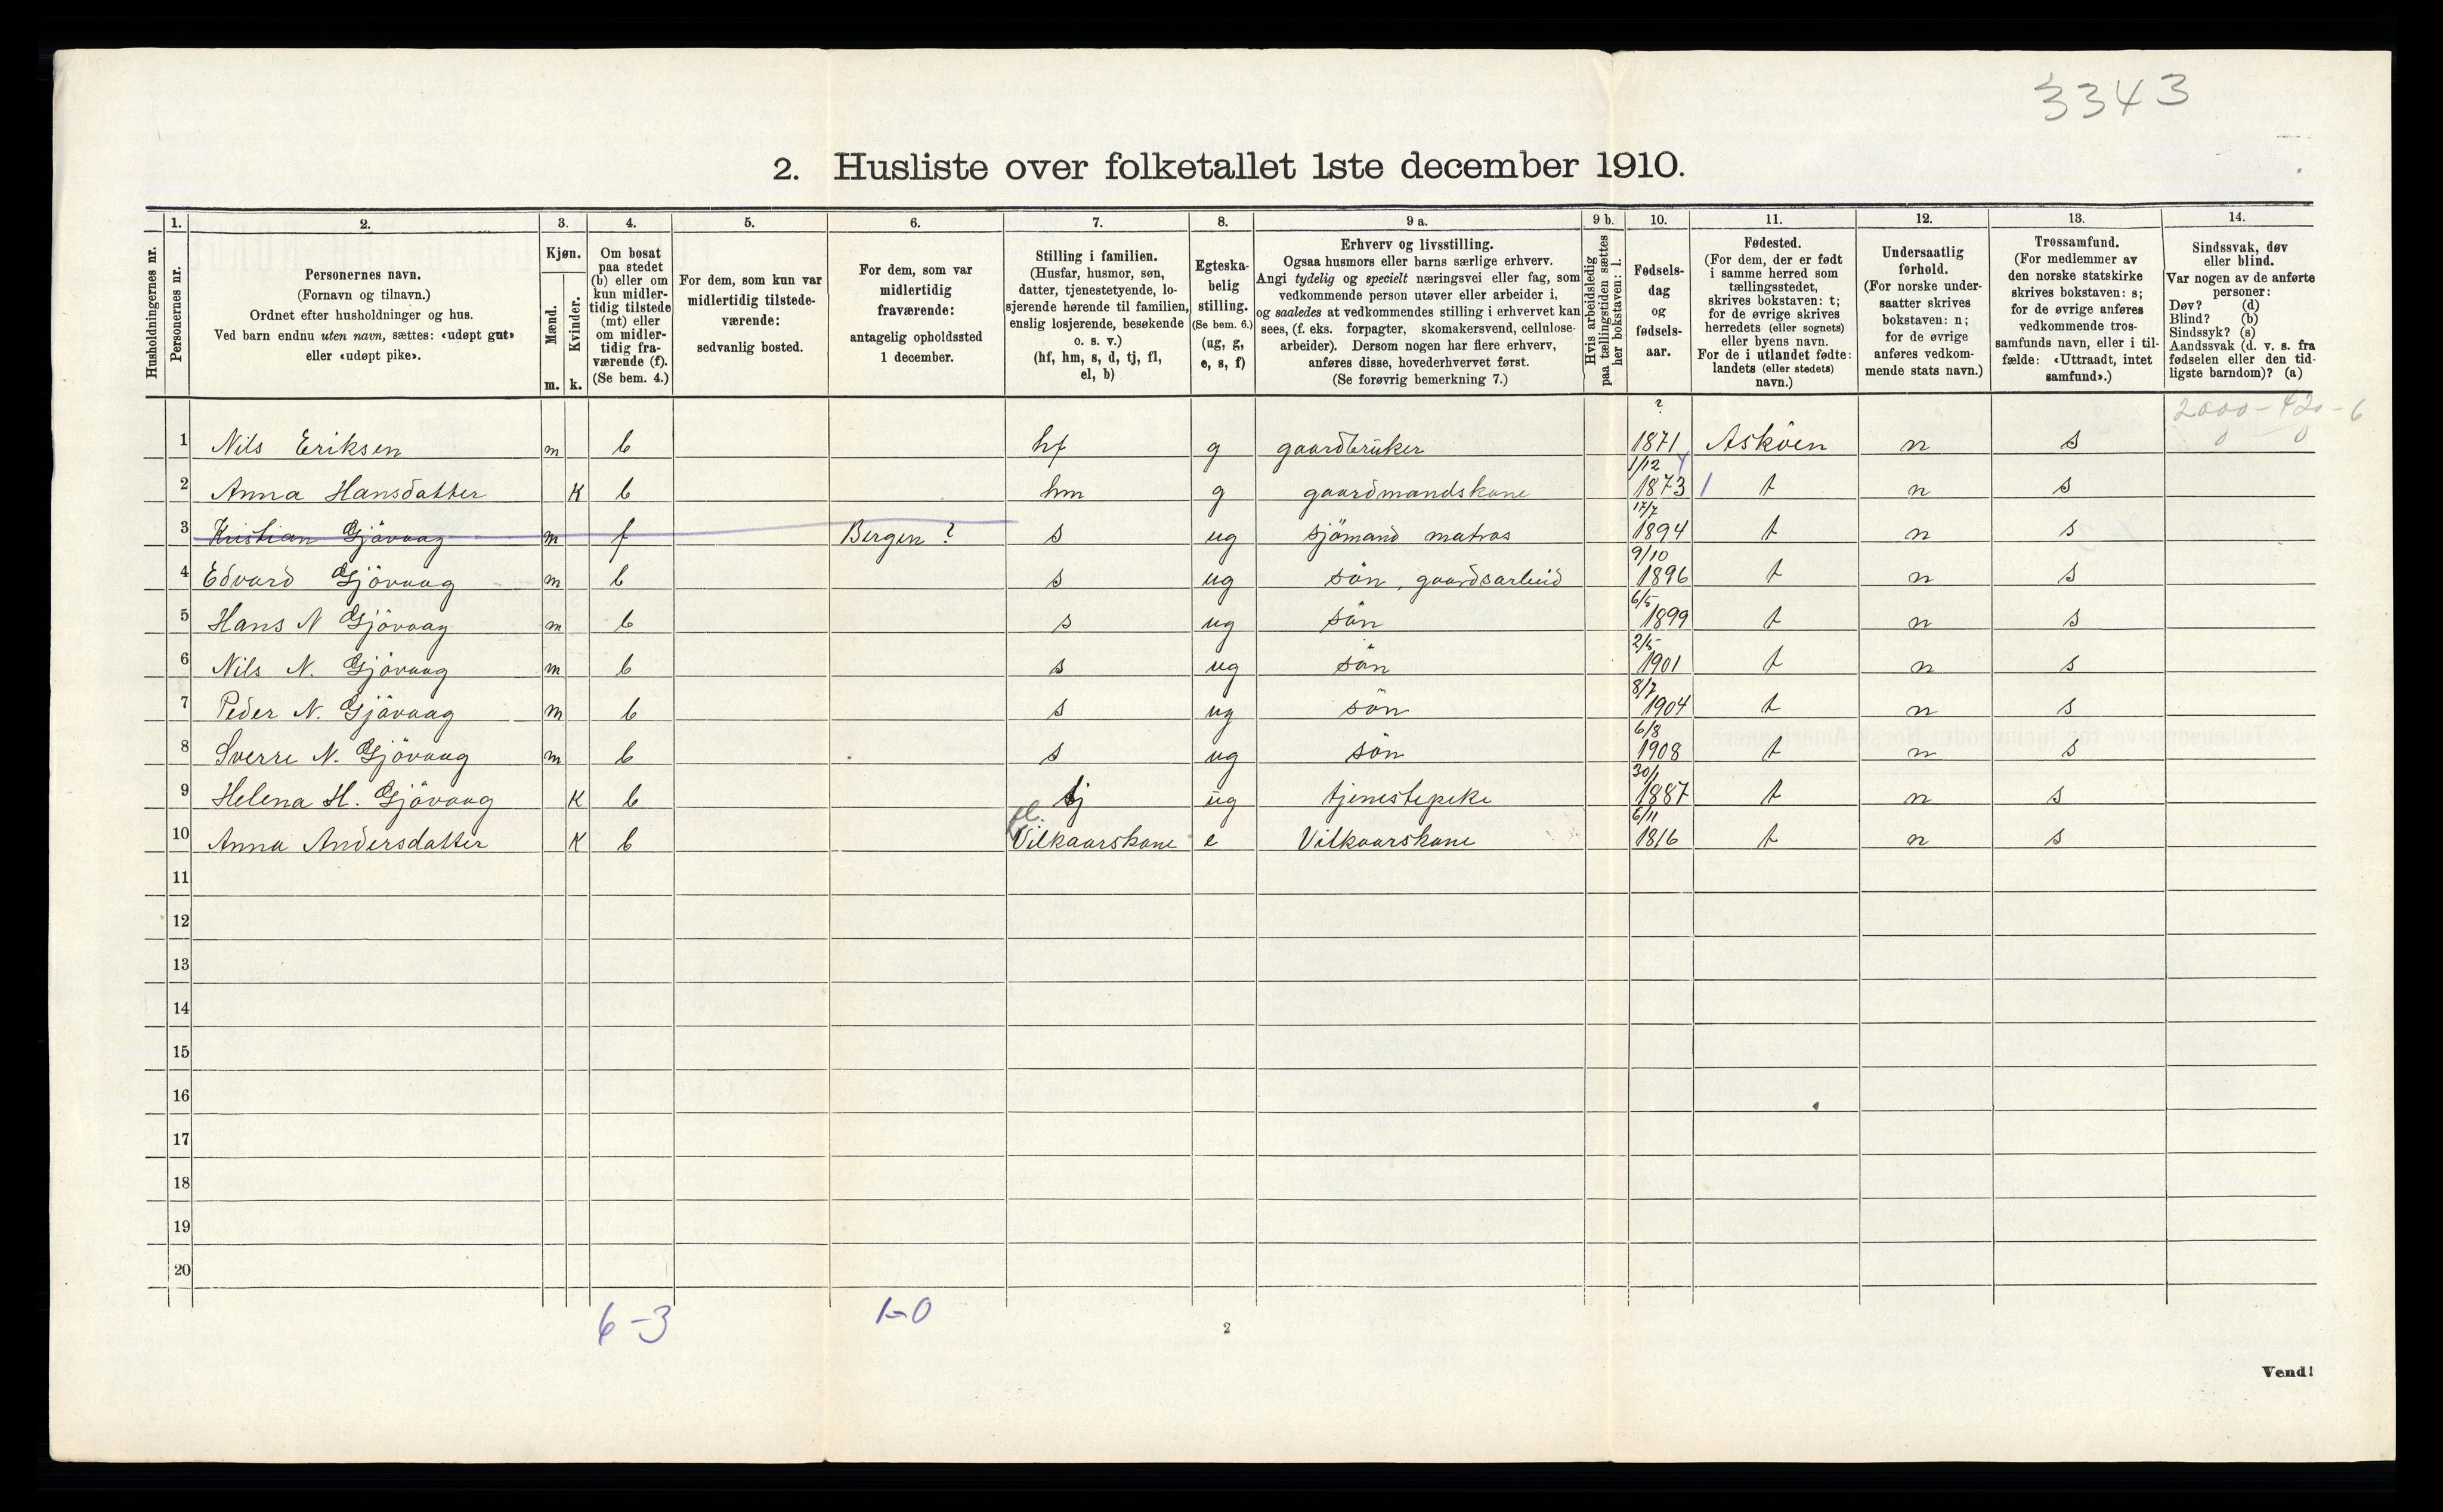 3343
2. Husliste over folketallet 1ste december 1910.
Husholdningernes nr.
1.
Personernes nr.
2.
Personernes navn.
(Fornavn og tilnavn.)
Ordnet efter husholdninger og hus.
Ved barn endnu uten navn, sættes: «udøpt gut»
eller «udøpt pike».
3.
Kjøn.
Mænd.
m.
Kvinder.
k.
4.
Om bosat
paa stedet
(b) eller om
kun midler-
tidig tilstede
(mt) eller
om midler-
tidig fra-
værende (f).
(Se bem. 4.)
5.
For dem, som kun var
midlertidig tilstede-
værende:
sedvanlig bosted.
6.
For dem, som var
midlertidig
fraværende:
antagelig opholdssted
1 december.
7.
Stilling i familien.
(Husfar, husmor, søn,
datter, tjenestetyende, lo-
sjerende hørende til familien,
enslig losjerende, besøkende
o. s. v.)
(hf, hm, s, d, tj, fl,
el, b)
8.
Egteska-
belig
stilling.
(Se bem. 6.)
(ug, g,
e, s, f)
9 a.
Erhverv og livsstilling.
Ogsaa husmors eller barns særlige erhverv.
Angi tydelig og specielt næringsvei eller fag, som
vedkommende person utøver eller arbeider i,
og saaledes at vedkommendes stilling i erhvervet kan
sees, (f. eks. forpagter, skomakersvend, cellulose-
arbeider). Dersom nogen har flere erhverv,
anføres disse, hovederhvervet først.
(Se forøvrig bemerkning 7.)
9 b.
Hvis arbeidsledig
paa tællingstiden sættes
her bokstaven: l.
10.
Fødsels-
dag
og
fødsels-
aar.
11.
Fødested.
(For dem, der er født
i samme herred som
tællingsstedet,
skrives bokstaven: t;
for de øvrige skrives
herredets (eller sognets)
eller byens navn.
For de i utlandet fødte:
landets (eller stedets)
navn.)
12.
Undersaatlig
forhold.
(For norske under-
saatter skrives
bokstaven: n;
for de øvrige
anføres vedkom-
mende stats navn.)
13.
Trossamfund.
(For medlemmer av
den norske statskirke
skrives bokstaven: s;
for de øvrige anføres
vedkommende tros-
samfunds navn, eller i til-
fælde: «Uttraadt, intet
samfund».)
14.
Sindssvak, døv
eller blind.
Var nogen av de anførte
personer:
Døv? (d)
Blind? (b)
Sindssyk? (s)
Aandssvak (d. v. s. fra
fødselen eller den tid-
ligste barndom)? (a)
2000-420-6
1 Nils Eriksen m b hf g gaardbruker ? 1871 Asköen n s
2 Anna Hansdatter K b hm g gaardmandskone 1/12 1873 t n s
3 Kristian Gjövaag m f Bergen ? s ug sjömand matros 17/7 1894 t n s
4 Edvard Gjövaag m b s ug sön, gaardsarbeid 9/10 1896 t n s
5 Hans N Gjövaag m b s ug sön 6/5 1899 t n s
6 Nils N. Gjövaag m b s ug sön 2/5 1901 t n s
7 Peder N. Gjövaag m b s ug sön 8/7 1904 t n s
8 Sverre N. Gjövaag m b s ug sön 6/8 1908 t n s
9 Helena H. Gjövaag K b tj ug tjenestepeke 30/1 1887 t n s
10 Anna Andersdatter K b fl. Vilkaarskone e Vilkaarskone 6/11 1816 t n s
11
12
13
14
15
16
17
18
19
20
6-3
1-0
2
Vend!